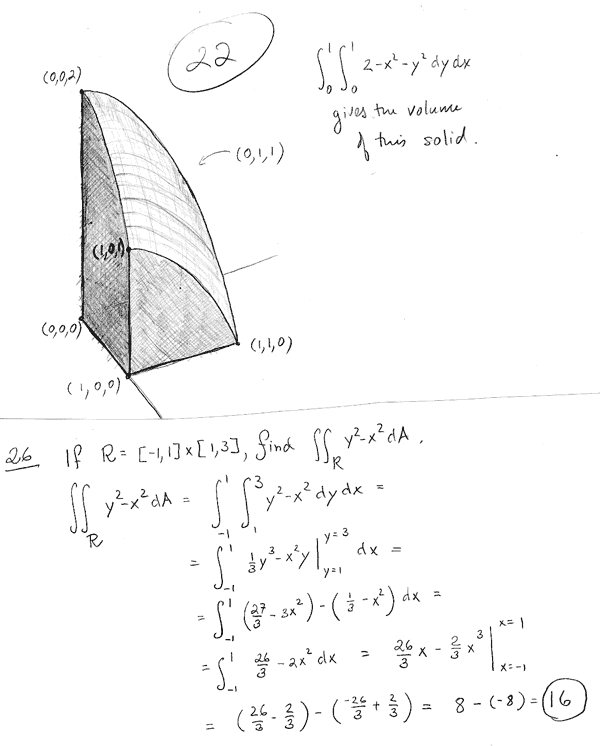 22
(0,0,2)
∫₀¹ ∫₀¹ 2-x²-y² dy dx
gives the volume
of this solid.
(0,1,1)
(1,0,1)
(0,0,0)
(1,1,0)
(1,0,0)
26 If R = [-1,1]×[1,3], find ∬_R y²-x² dA.
∬_R y²-x² dA = ∫_{-1}^{1} ∫_{1}^{3} y²-x² dy dx =
= ∫_{-1}^{1} 1/3 y³ - x²y |_{y=1}^{y=3} dx =
= ∫_{-1}^{1} (27/3 - 3x²) - (1/3 - x²) dx =
= ∫_{-1}^{1} 26/3 - 2x² dx = 26/3 x - 2/3 x³ |_{x=-1}^{x=1}
= (26/3 - 2/3) - (-26/3 + 2/3) = 8 - (-8) = 16